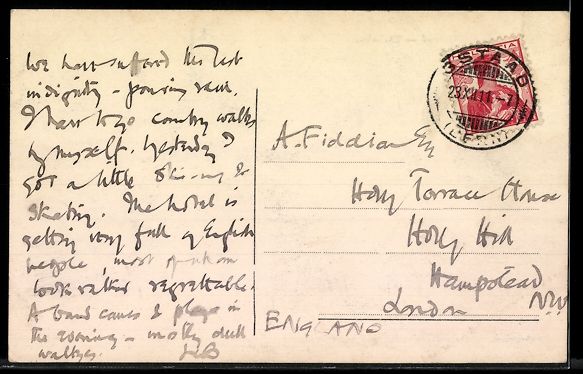 We have suffered the last
indignity – pouring rain.
I have to go country walks
by myself. Yesterday I
got a little ski-ing &
skating. The hotel is
getting very full of English
people, most of whom
look rather regrettable.
A band comes & plays in
the evening – mostly dull
waltzes.
GSTAAD
23.XII.11.
(BERN)
HELVETIA
A. Fiddian Esq
Holly Terrace House
Holly Hill
Hampstead
London N.W
ENGLAND